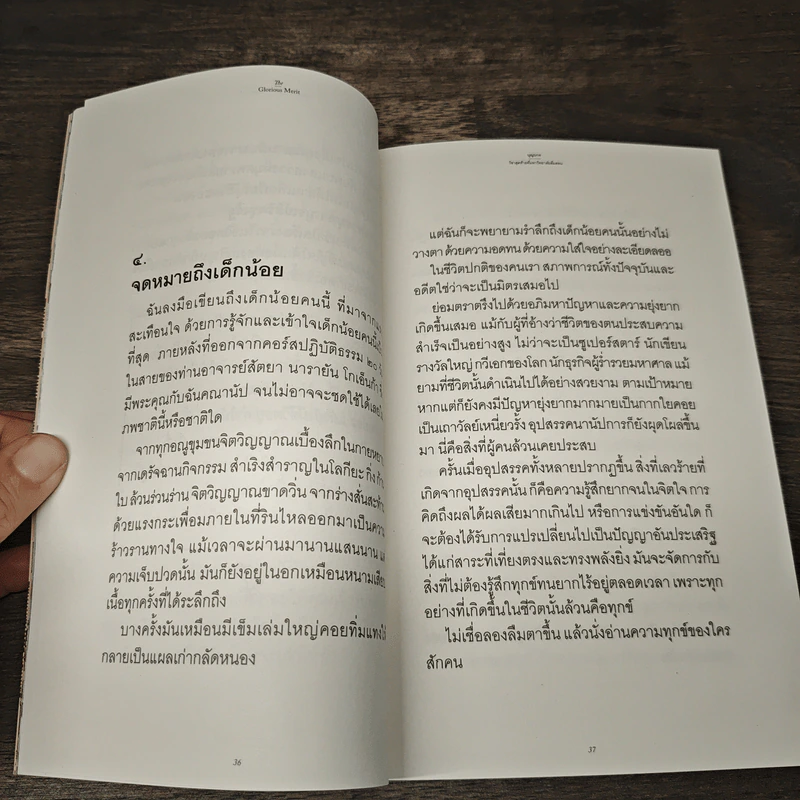 The
Glorious Merit
๔.
จดหมายถึงเด็กน้อย
ฉันลงมือเขียนถึงเด็กน้อยคนนี้ ที่มาจาก
สะเทือนใจ ด้วยการรู้จักและเข้าใจเด็กน้อยคนนี้
ที่สุด ภายหลังที่ออกจากคอร์สปฏิบัติธรรม ๒๐
ในสายของท่านอาจารย์สัตยา นารายัน โกเอ็นก้า
มีพระคุณกับฉันคณานัป จนไม่อาจจะชดใช้ได้
ภพชาตินี้หรือชาติใด
จากทุกอณูขุมขนจิตวิญญาณเบื้องลึกในกายหยาบ
จากเดรัจฉานกิจกรรม สำเริงสำราญในโลกียะ กิ่ง ก้าน
ใบ ล้วนร่วนร่าน จิตวิญญาณขาดวิ่น จากร่างสั่นสะท้าน
ด้วยแรงกระเพื่อมภายในที่รินไหลออกมาเป็นความ
ร้าวรานทางใจ แม้เวลาจะผ่านมานานแสนนาน แต่
ความเจ็บปวดนั้น มันก็ยังอยู่ในอกเหมือนหนามเสียบ
เนื้อทุกครั้งที่ได้ระลึกถึง
บางครั้งมันเหมือนมีเข็มเล่มใหญ่คอยทิ่มแทงให้
กลายเป็นแผลเก่ากลัดหนอง
36
แต่ฉันก็จะพยายามรำลึกถึงเด็กน้อยคนนั้นอย่างไม่
วางตา ด้วยความอดทน ด้วยความใส่ใจอย่างละเอียดลออ
ในชีวิตปกติของคนเรา สภาพการณ์ทั้งปัจจุบันและ
อดีตใช่ว่าจะเป็นมิตรเสมอไป
ย่อมตราตรึงไปด้วยอภิมหาปัญหาและความยุ่งยาก
เกิดขึ้นเสมอ แม้กับผู้ที่อ้างว่าชีวิตของตนประสบความ
สำเร็จเป็นอย่างสูง ไม่ว่าจะเป็นซูเปอร์สตาร์ นักเขียน
รางวัลใหญ่ กวีเอกของโลก นักธุรกิจผู้ร่ำรวยมหาศาล แม้
ยามที่ชีวิตนั้นดำเนินไปได้อย่างสวยงาม ตามเป้าหมาย
หากแต่ก็ยังคงมีปัญหายุ่งยากมากมายเป็นกากใยคอย
เป็นเถาวัลย์เหนี่ยวรั้ง อุปสรรคนานัปการก็ยังผุดโผล่ขึ้น
มา นี่คือสิ่งที่ผู้คนล้วนเคยประสบ
ครั้นเมื่ออุปสรรคทั้งหลายปรากฏขึ้น สิ่งที่เลวร้ายที่
เกิดจากอุปสรรคนั้น ก็คือความรู้สึกยากจนในจิตใจ การ
คิดถึงผลได้ผลเสียมากเกินไป หรือการแข่งขันอันใด ก็
จะต้องได้รับการแปรเปลี่ยนไปเป็นปัญญาอันประเสริฐ
ได้แก่สาระที่เที่ยงตรงและทรงพลังยิ่ง มันจะจัดการกับ
สิ่งที่ไม่ต้องรู้สึกทุกข์ทนยากไร้อยู่ตลอดเวลา เพราะทุก
อย่างที่เกิดขึ้นในชีวิตนั้นล้วนคือทุกข์
ไม่เชื่อลองลืมตาขึ้น แล้วนั่งอ่านความทุกข์ของใคร
สักคน
37